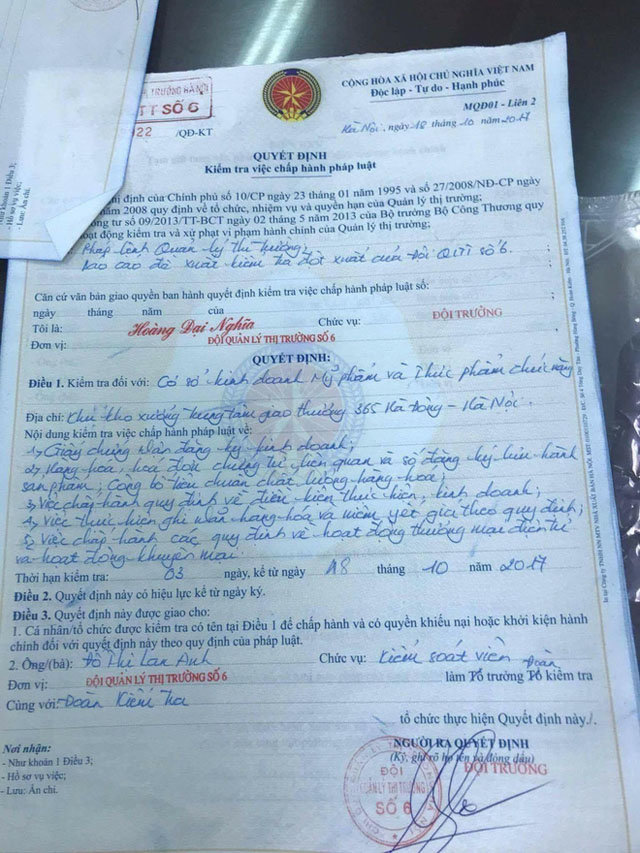 TRƯỜNG HÀ NỘI
TT SỐ 6
22 /QĐ-KT
CỘNG HÒA XÃ HỘI CHỦ NGHĨA VIỆT NAM
Độc lập - Tự do - Hạnh phúc
MQĐ01 - Liên 2
Hà Nội, ngày 18 tháng 10 năm 2017
QUYẾT ĐỊNH
Kiểm tra việc chấp hành pháp luật
hị định của Chính phủ số 10/CP ngày 23 tháng 01 năm 1995 và số 27/2008/NĐ-CP ngày
năm 2008 quy định về tổ chức, nhiệm vụ và quyền hạn của Quản lý thị trường;
ng tư số 09/2013/TT-BCT ngày 02 tháng 5 năm 2013 của Bộ trưởng Bộ Công Thương quy
oạt động kiểm tra và xử phạt vi phạm hành chính của Quản lý thị trường;
Pháp lệnh Quản lý thị trường;
Báo cáo đề xuất kiểm tra đột xuất của Đội QLTT số 6.
Căn cứ văn bản giao quyền ban hành quyết định kiểm tra việc chấp hành pháp luật số:
ngày tháng năm của
Tôi là: Hoàng Đại Nghĩa Chức vụ: ĐỘI TRƯỞNG
Đơn vị: ĐỘI QUẢN LÝ THỊ TRƯỜNG SỐ 6
QUYẾT ĐỊNH:
Điều 1. Kiểm tra đối với: Cơ sở kinh doanh Mỹ phẩm và Thực phẩm chức năng
Địa chỉ: Khu kho xưởng trung tâm giao thương 365 Hà Đông - Hà Nội.
Nội dung kiểm tra việc chấp hành pháp luật về:
1, Giấy chứng nhận đăng ký kinh doanh;
2, Hàng hóa, hóa đơn chứng từ liên quan và số đăng ký lưu hành
sản phẩm; Công bố tiêu chuẩn chất lượng hàng hóa;
3, Việc chấp hành quy định về điều kiện thực hiện, kinh doanh;
4, Việc thực hiện ghi nhãn hàng hóa và niêm yết giá theo quy định;
5, Việc chấp hành các quy định về hoạt động thương mại điện tử
và hoạt động khuyến mại.
Thời hạn kiểm tra: 03 ngày, kể từ ngày 18 tháng 10 năm 2017
Điều 2. Quyết định này có hiệu lực kể từ ngày ký.
Điều 3. Quyết định này được giao cho:
1. Cá nhân/tổ chức được kiểm tra có tên tại Điều 1 để chấp hành và có quyền khiếu nại hoặc khởi kiện hành
chính đối với quyết định này theo quy định của pháp luật.
2. Ông/(bà): Đỗ Thị Lan Anh Chức vụ: Kiểm soát viên
Đơn vị: ĐỘI QUẢN LÝ THỊ TRƯỜNG SỐ 6 làm Tổ trưởng Tổ kiểm tra
Đoàn
Cùng với: Đoàn Kiểm tra
tổ chức thực hiện Quyết định này./.
Nơi nhận:
- Như khoản 1 Điều 3;
- Hồ sơ vụ việc;
- Lưu: Ấn chỉ.
NGƯỜI RA QUYẾT ĐỊNH
(Ký, ghi rõ họ tên và đóng dấu)
ĐỘI TRƯỞNG
ĐỘI
QUẢN LÝ THỊ TRƯỜNG
SỐ 6
khoản 1 Điều 3;
- Hồ sơ vụ việc;
- Lưu: Ấn chỉ.